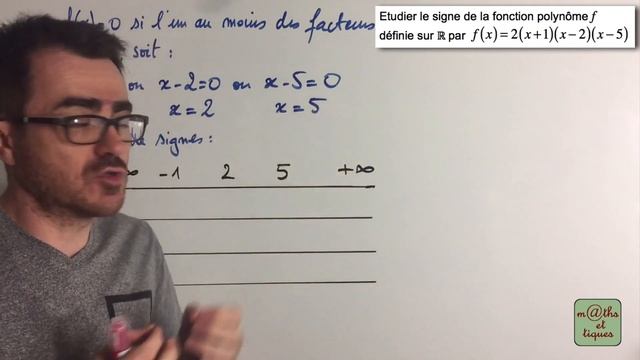 Etudier le signe de la fonction polynôme f
définie sur ℝ par f(x)=2(x+1)(x−2)(x−5)
=0 si l'un au moins des facteurs
soit :
ou x-2=0 ou x-5=0
x=2 x=5
signes :
∞ -1 2 5 +∞
m@ths
et
tiques